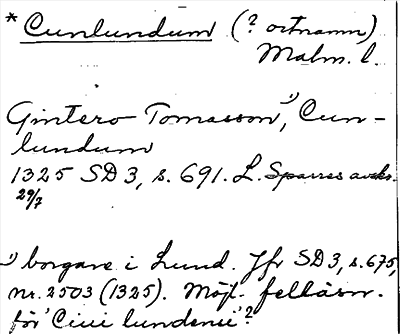 * Cunlundum (? ortnamn)
Malm. l.
Gintero Tomasson¹⁾, Cun-
lundum
1325 SD 3, s. 691. L. Sparres avskr.
29/7
¹⁾ borgare i Lund. Jfr SD 3, s. 675,
nr. 2503 (1325). Möjl. felläsn.
för "Ciui lundensi"?